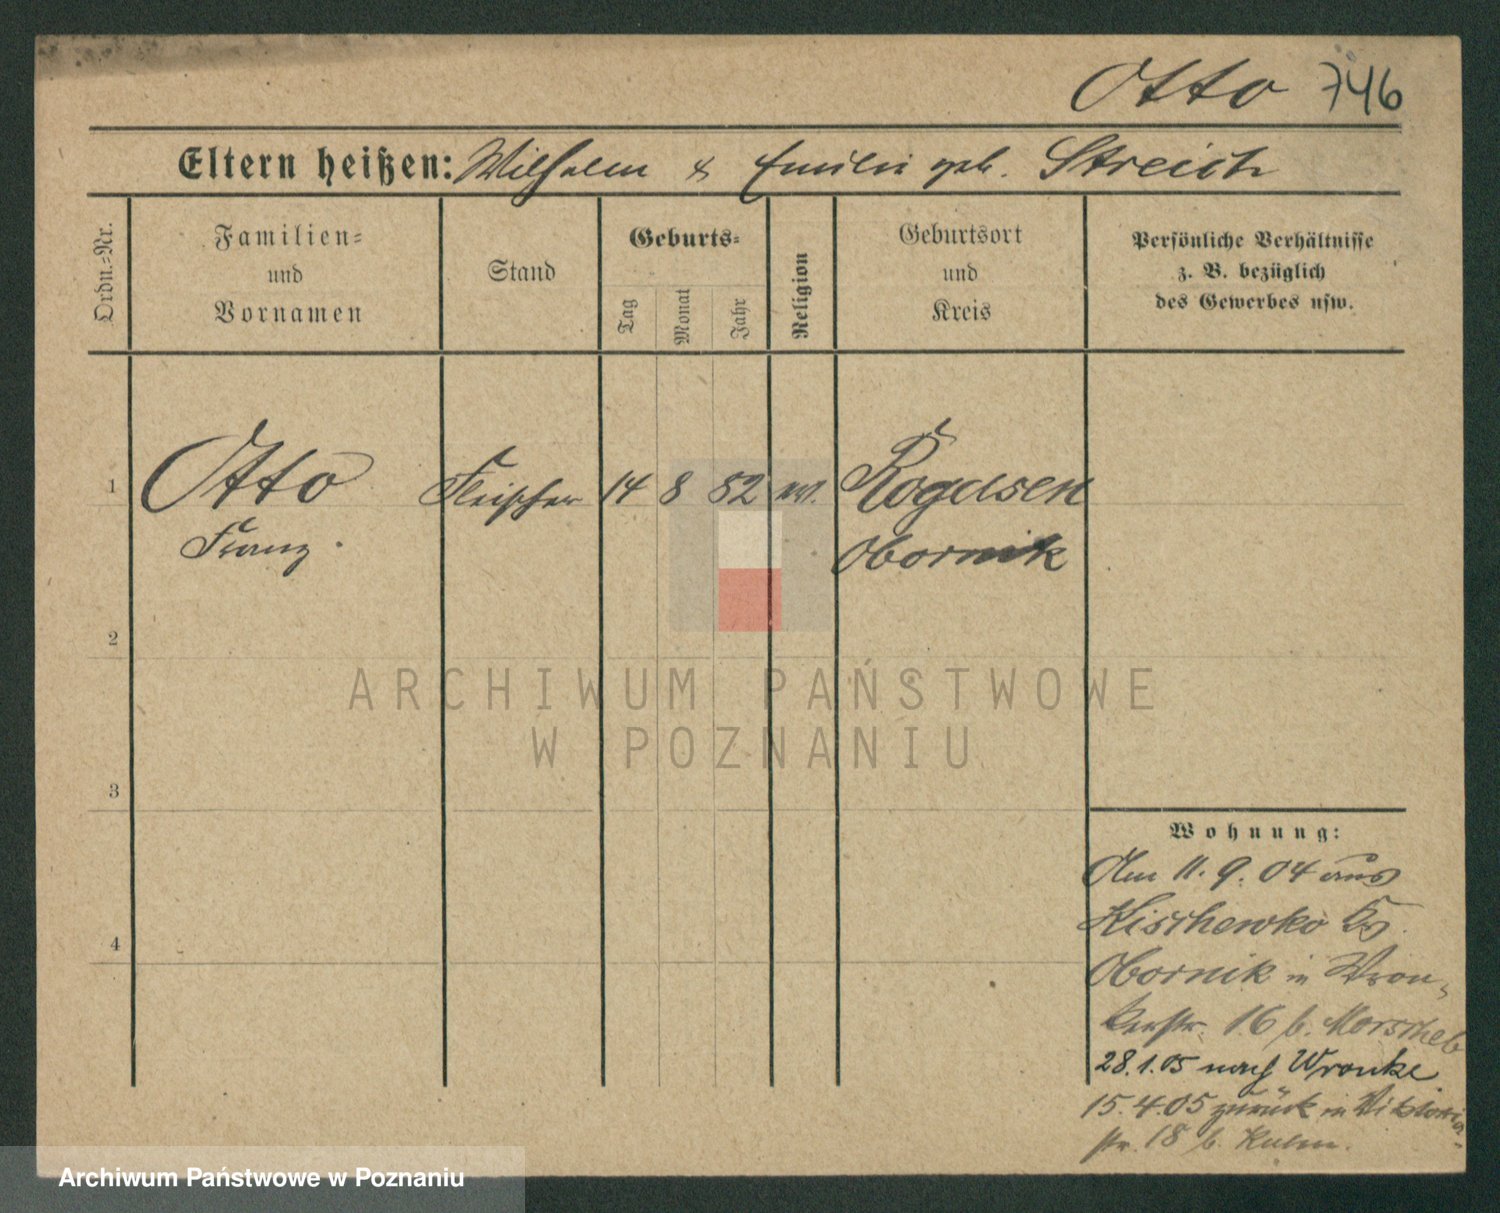 Otto 746
Eltern heißen: Wilhelm & Emilie geb. Streich
Ordn.=Nr.
Familien=
und
Vornamen
Stand
Geburts=
Tag
Monat
Jahr
Religion
Geburtsort
und
Kreis
Persönliche Verhältnisse
z. B. bezüglich
des Gewerbes usw.
1 Otto Fleischer 14 8 82 ev. Rogasen
Franz. Obornik
2
3
4
Wohnung:
Am 11. 9. 04 aus
Kischewko Ks.
Obornik in Wron-
kerstr. 16 b. Morscheb
28.1.05 nach Wronke
15.4.05 zurück in Viktoria-
str. 18 b. Kulm.
ARCHIWUM PAŃSTWOWE
W POZNANIU
Archiwum Państwowe w Poznaniu